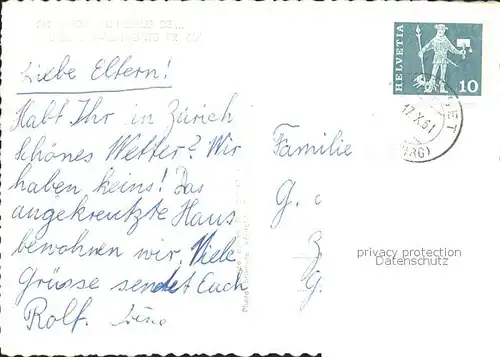 HELVETIA
10
17.X.61
Liebe Eltern!
Habt Ihr in Zürich
schönes Wetter? Wir
haben keins! Das
angekreuzte Haus
bewohnen wir. Viele
Grüsse sendet Euch
Rolf.
Familie
G.
Z
G.
privacy protection
Datenschutz